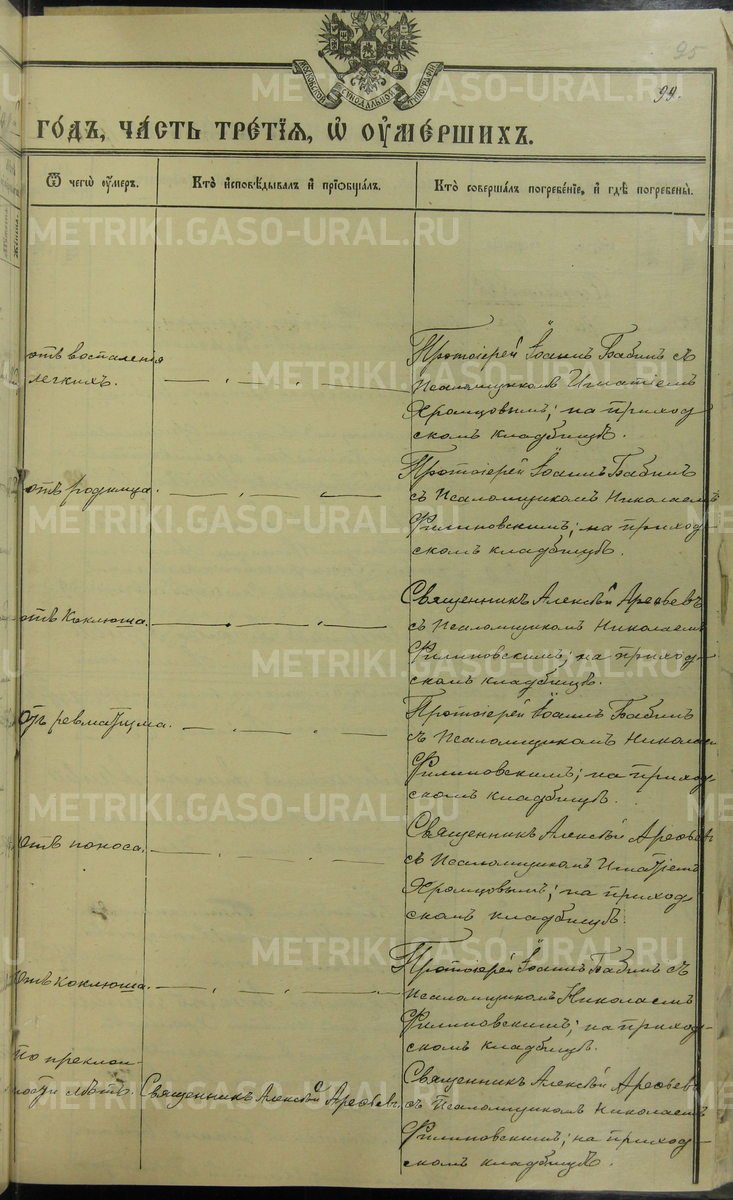 95
99.
МОСКОВСКОЙ СУНОДАЛЬНОЙ ТИПОГРАФІИ
ГО́ДЪ, ЧА́СТЬ ТРЕ́ТІѦ, Ѡ҆ ОУ҆МЕ́РШИХЪ.
Ѿ чегѡ̀ оу҆́меръ.
Кто̀ и҆сповѣ́дывалъ и҆ прїѡбща́лъ.
Кто̀ соверша́лъ погребе́нїе, и҆ гдѣ̀ погребены̀.
отъ воспаленія
легкихъ.
Протоіерей Іоаннъ Бабинъ съ
Псаломщикомъ Игнатіемъ
Хромцовымъ; на приход
скомъ кладбищѣ.
отъ родимца.
Протоіерей Іоаннъ Бабинъ
съ Псаломщикомъ Николаемъ
Филиповскимъ; на приход-
скомъ кладбищѣ.
отъ Коклюша.
Священникъ Алексѣй Арефьевъ
съ Псаломщикомъ Николаемъ
Филиповскимъ; на приход-
скомъ кладбищѣ.
Отъ ревматизма.
Протоіерей Іоаннъ Бабинъ
съ Псаломщикомъ Николаем
Филиповскимъ; на приход
скомъ кладбищѣ.
Отъ поноса.
Священникъ Алексѣй Арефьевъ
съ Псаломщикомъ Игнатіемъ
Хромцовымъ; на приход
скомъ кладбищѣ.
Отъ Коклюша.
Протоіерей Іоаннъ Бабинъ съ
Псаломщикомъ Николаемъ
Филиповскимъ; на приход-
скомъ кладбищѣ.
по преклон-
ности лѣтъ.
Священникъ Алексѣй Арефьевъ
Священникъ Алексѣй Арефьевъ
съ Псаломщикомъ Николаемъ
Филиповскимъ; на приход-
скомъ кладбищѣ.
METRIKI.GASO-URAL.RU